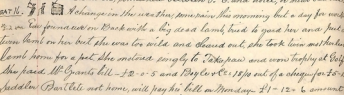 SAT 16. A change in the weather, some rain this morning but a day for work
Ewe found down on Bank with a big dead lamb, tried to yard her and put
twin lamb on her but she was too wild and cleared out, she took twin mother
lamb home for a pet, she motored singly to Takapau and won trophy at Golf
She paid Mr Grants bill - £2-2-5 and Bogle & Co 18/2 out of a cheque for £5
Saddler Bartlett not home, will pay his bill on Monday £1-12-6 amount